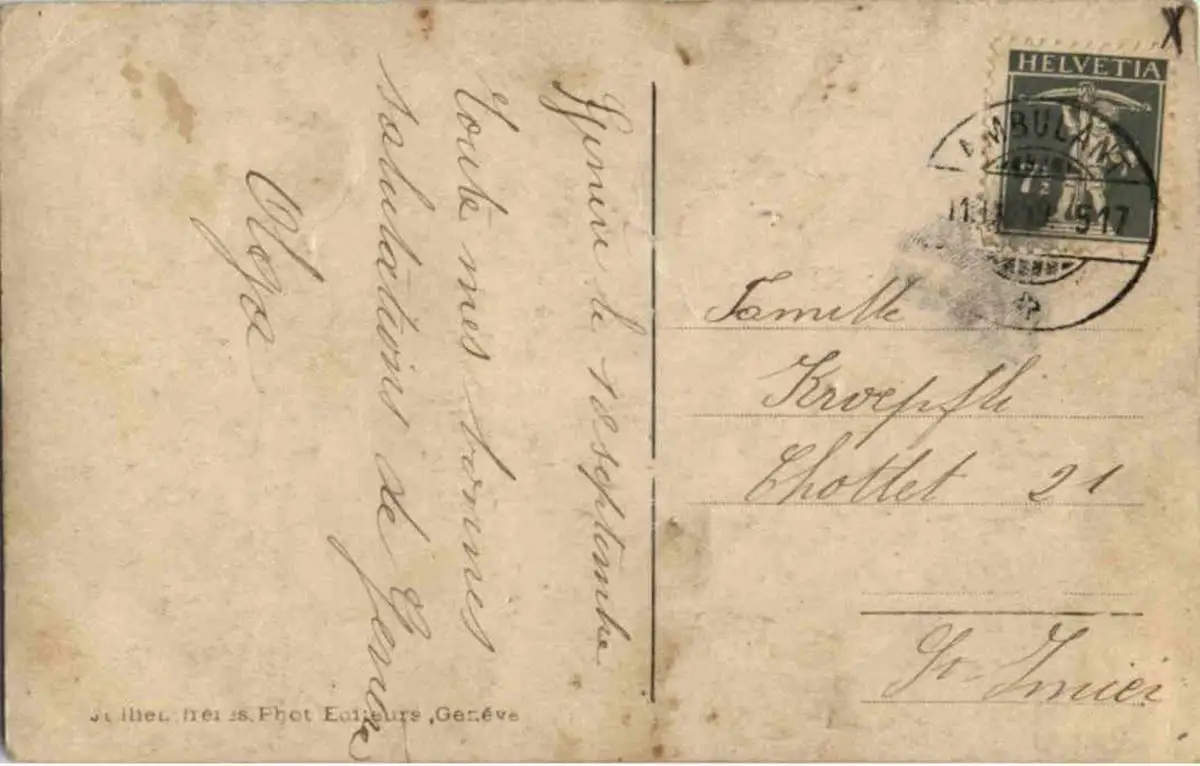 Genève le 18 septembre
Toute mes bonnes
salutations de Genève
Olga
HELVETIA
7½
AMBULANT
Famille
Kroepfli
Chottet 21
St. Imier
Jullien frères, Phot Editeurs, Genève
X